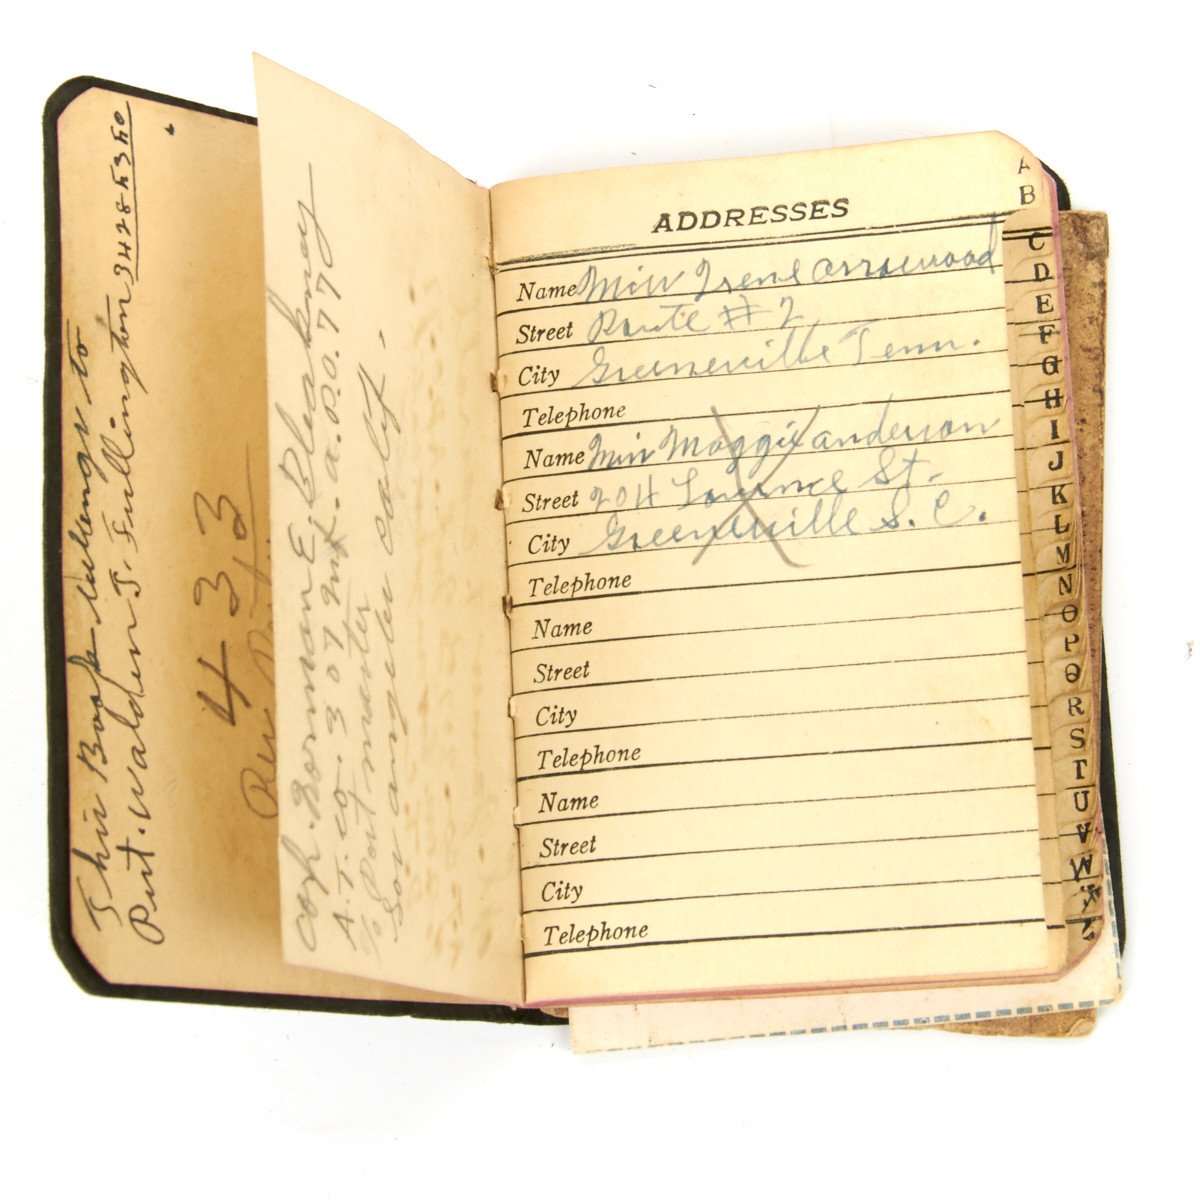 This Book belongs to
Pvt. Walden T. Fullington 34284350
433
Corp. Norman E. Bleakney
A.T. Co. 307 Inf. A.P.O. 77
% Postmaster
San Calif.
ADDRESSES
Name Miss Irene Arrowood
Street Route # 2
City Greeneville Tenn.
Telephone
Name Miss Maggie Anderson
Street 204 St.
City Greeneville S. C.
Telephone
Name
Street
City
Telephone
Name
Street
City
Telephone
A
B
C
D
E
F
G
H
I
J
K
L
M
N
O
P
Q
R
S
T
U
V
W
X
Z